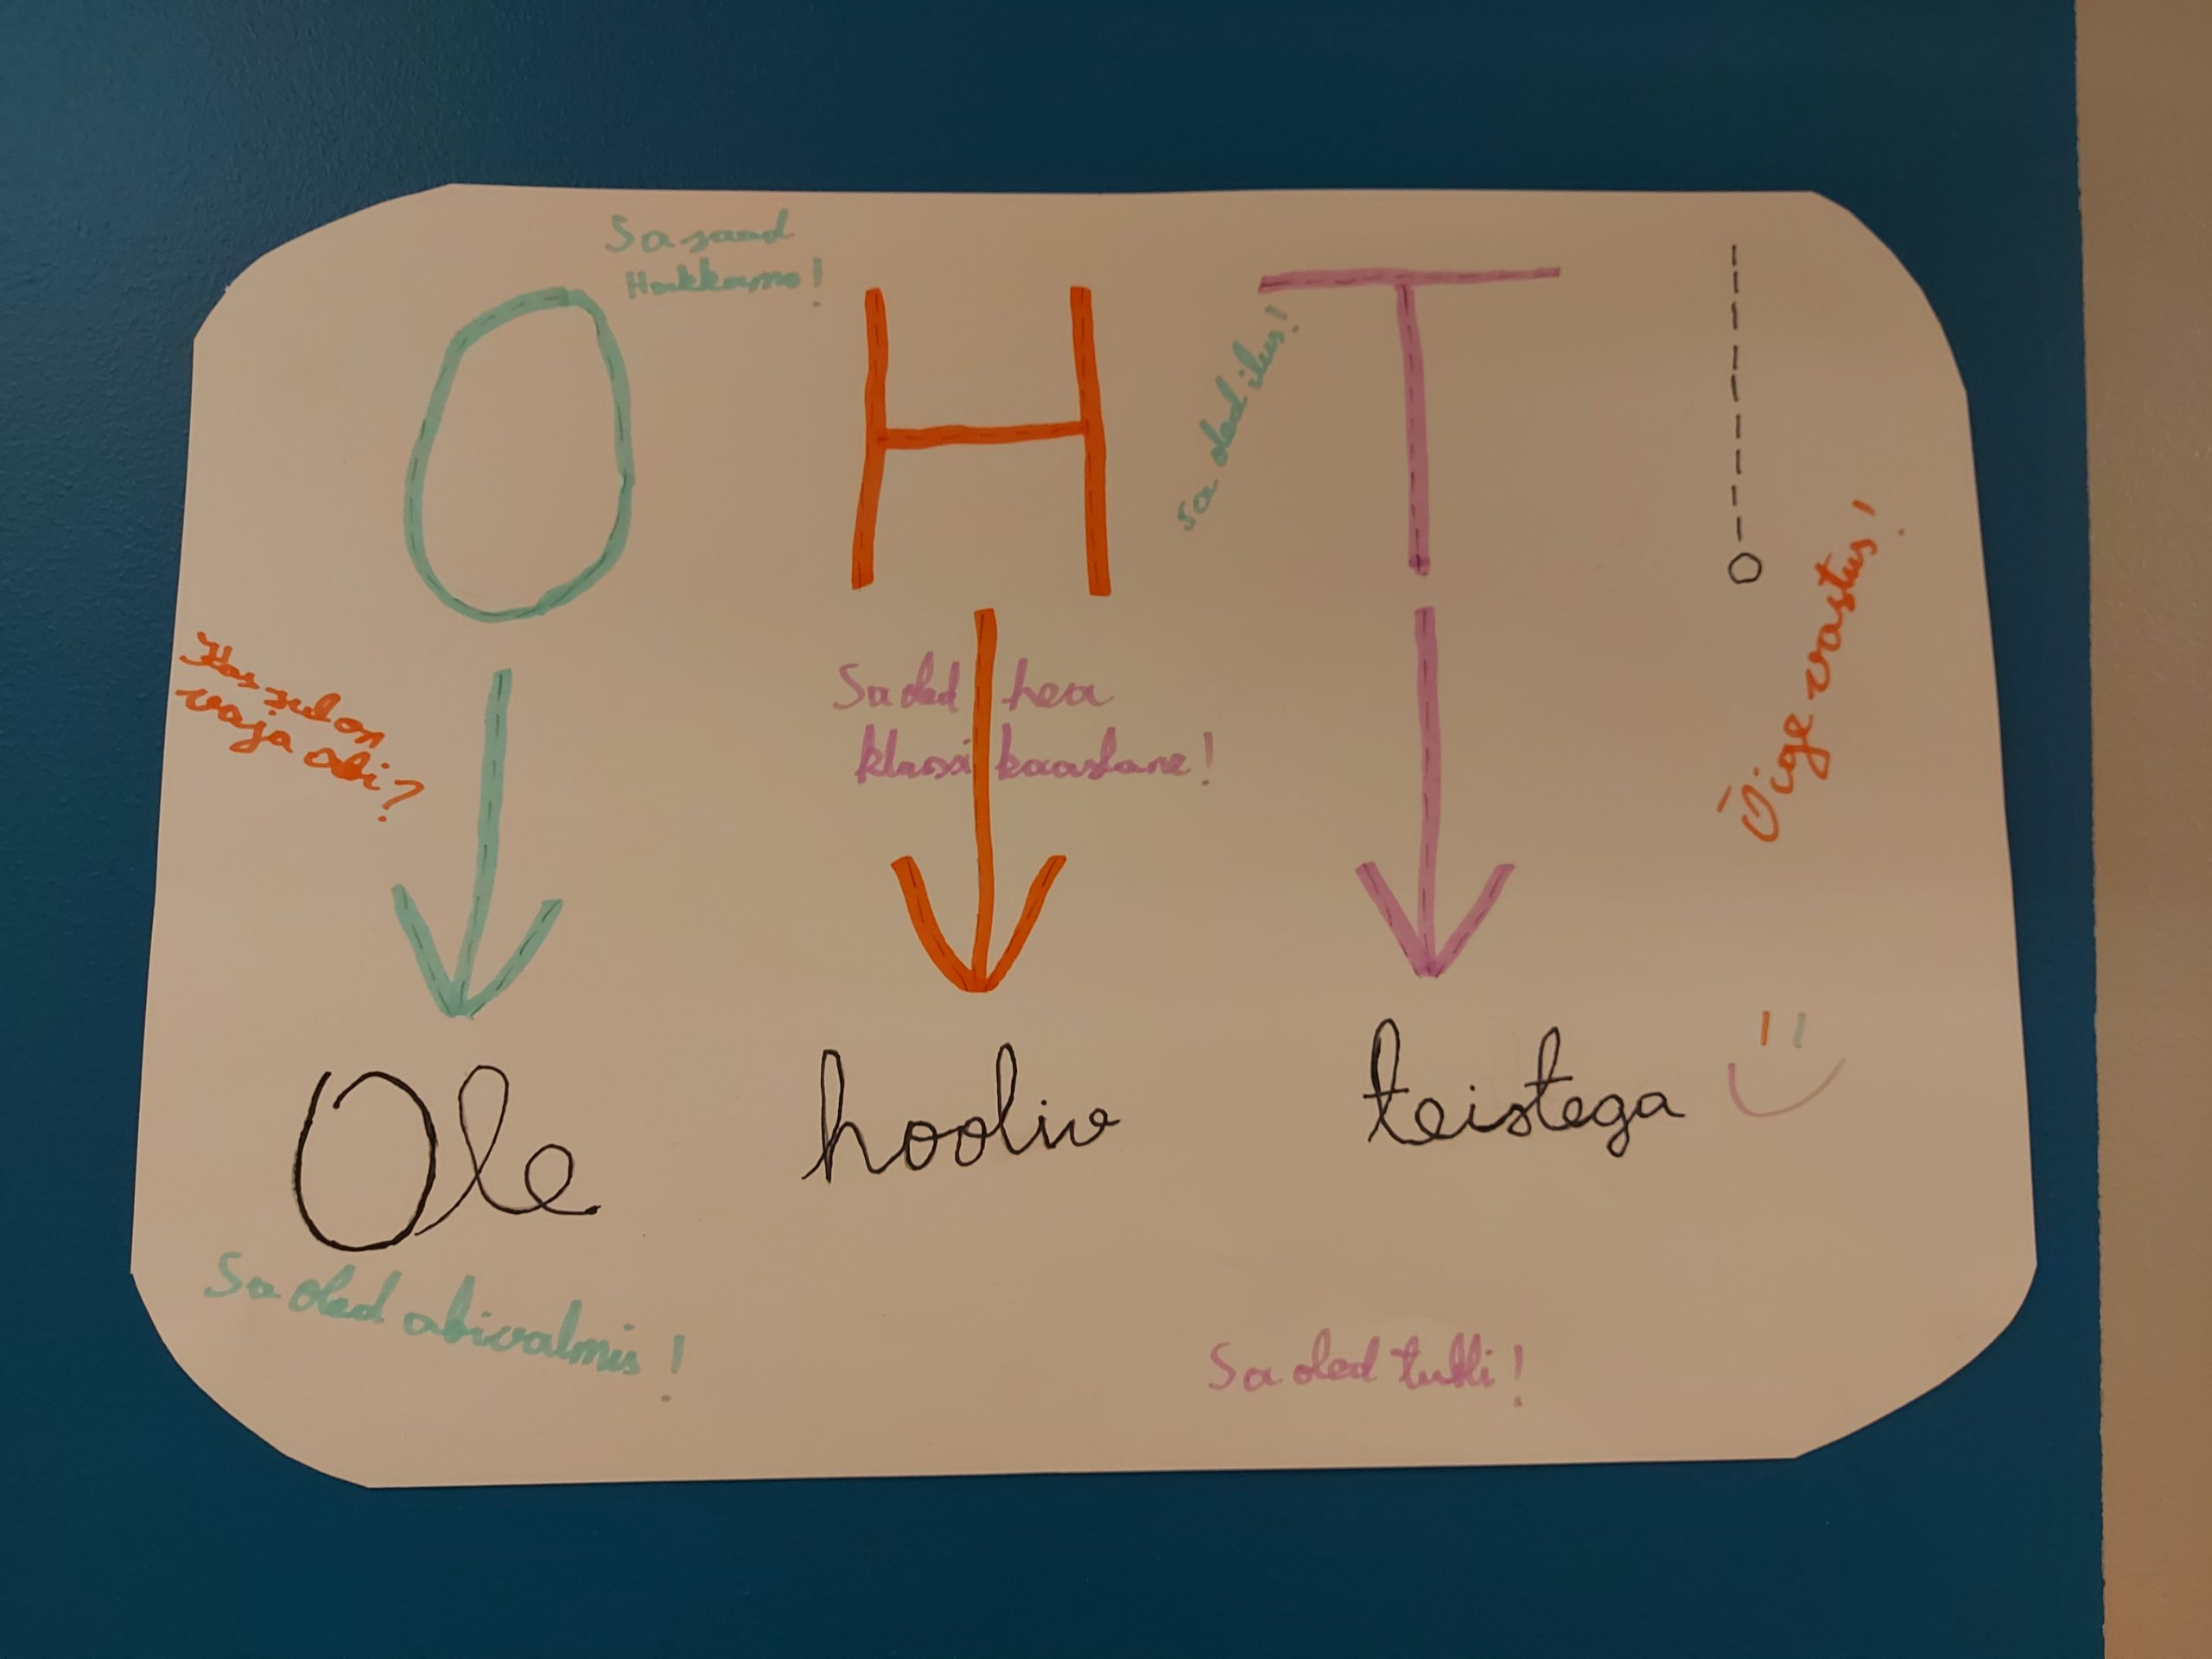 Sa saad
Hakkama!
O H T !
sa oled ilus!
Kas sul on
vaja abi?
Sa oled hea
klassikaaslane!
Õige vastus!
Ole hooliv teistega
Sa oled abivalmis!
Sa oled tubli!